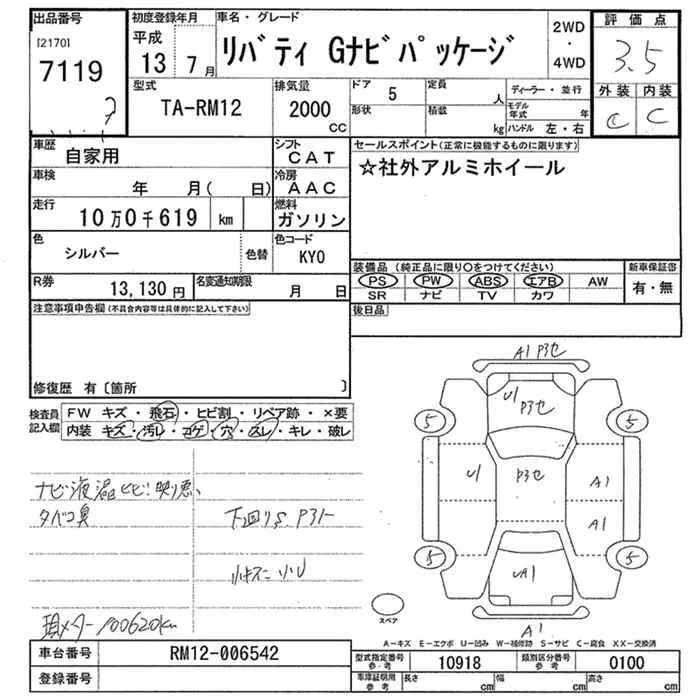 出品番号
[2170]
7119
7
初度登録年月
平成
13 7月
車名・グレード
リバティ Gナビパッケージ
2WD
・
4WD
評価点
3.5
外装 内装
C C
型式
TA-RM12
排気量
2000
CC
ドア 5
形状
定員 人
積載 kg
ディーラー・並行
モデル年式 年
ハンドル 左・右
車歴 自家用
シフト CAT
車検 年 月( 日)
冷房 AAC
走行 10万0千619 km
燃料 ガソリン
色 シルバー
色替
色コード KY0
R券 13,130円
名変通知期限 月 日
セールスポイント(正常に機能するものに限ります)
☆社外アルミホイール
装備品(純正品に限り○をつけてください)
新車保証書
PS PW ABS エアB AW
SR ナビ TV カワ
有・無
後日品
注意事項申告欄(不具合内容等は具体的に記入して下さい)
修復歴 有〔箇所 〕
検査員記入欄
FW キズ・飛石・ヒビ割・リペア跡・×要
内装 キズ・汚レ・コゲ・穴・スレ・キレ・破レ
ナビ液晶ヒビ!映り悪い
タバコ臭
下回りS.P3ト
小キズ 小U
現メーター100620km
A1 P3セ
U1
P3セ
5 5
U1 P3セ A1
A1
5 5
UA1
A1
スペア
A-キズ E-エクボ U-凹み W-補修跡 S-サビ C-腐食 XX-交換済
車台番号 RM12-006542
登録番号
型式指定番号参考 10918
類別区分番号参考 0100
車庫証明用参考
長さ cm
幅 cm
高さ cm